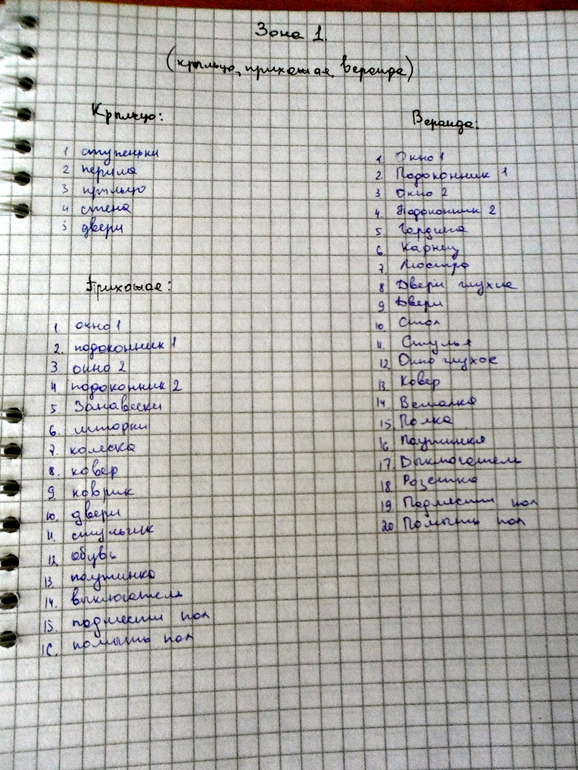 Зона 1.
(крыльцо, прихожая, веранда)
Крыльцо:
1 ступеньки
2 перила
3 крыльцо
4 стена
5 двери
Прихожая:
1. окно 1
2. подоконник 1
3 окно 2
4 подоконник 2
5 Занавески
6. шторки
7. коляска
8. ковер
9 коврик
10. двери
11. стульчик
12 обувь
13. паутинка
14. выключатель
15. подмести пол
16. помыть пол
Веранда:
1. Окно 1
2 Подоконник 1
3 Окно 2
4. Подоконник 2
5 Гардина
6 Карниз
7. Люстра
8 Двери глухие
9 Двери
10. Стол
11 Стулья
12 Окно глухое
13. Ковер
14 Вешалка
15. Полка
16 Паутинка
17. Выключатель
18 Розетка
19 Подмести пол
20 Помыть пол